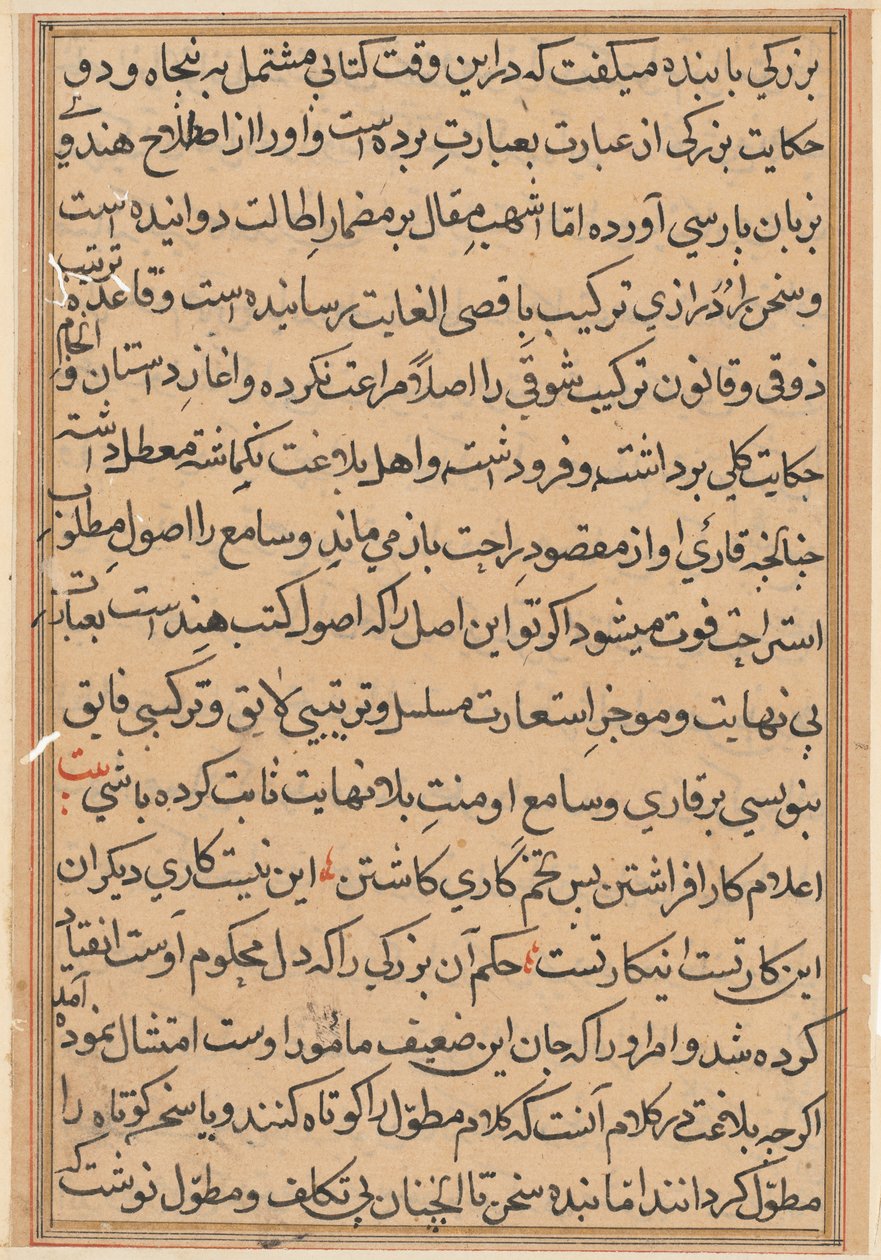 بزرکي با بنده میکفت که دراین وقت کتابي مشتمل به پنجاه و دو
حکایت بزرکی از عبارت بعبارتِ برده است و او را از اصطلاح هندوي
بزبان پارسي آورده امّا اشهبِ مقال بر مضمارِ اطالت دوانیده است
و سخن را دُرازي ترکیب باقصی الغایت رسانیده است و قاعده ترتیب
ذوقی و قانون ترکیب شوقي را اصلاً مراعت نکرده و اغازِ داستان و انجام
حکایت کلي برداشت و فروداشت و اهل بلاغت نکماشته معطل داشته
چنانجه قارئ او از مقصودِ راحت باز مي ماند و سامع را اصولِ مطلوب
استراحت فوت میشود اکر تو این اصل را که اصول کتب هند است بعبارت
بي نهایت و موجز استعارت مسلسل و ترتیبي لایق و ترکیبی فایق
بنویسي بر قاري و سامع او منتِ بلا نهایت ثابت کرده باشي بیت
اعلام کار افراشتن بس تخم کاري کاشتن این نیست کاري دیکران
این کار تست اینکار تست حکم آن بزرکي را که دل محکوم اوست انقیاد
کرده شد و امر او را که جان این ضعیف مامور اوست امتثال نموده آمد
اکرچه بلاغت در کلام آنست که کلام مطوّل را کوتاه کنند و یا سخن کوتاه را
مطوّل کردانند امّا بنده سخن تا انچنان بي تکلف و مطوّل نوشت که